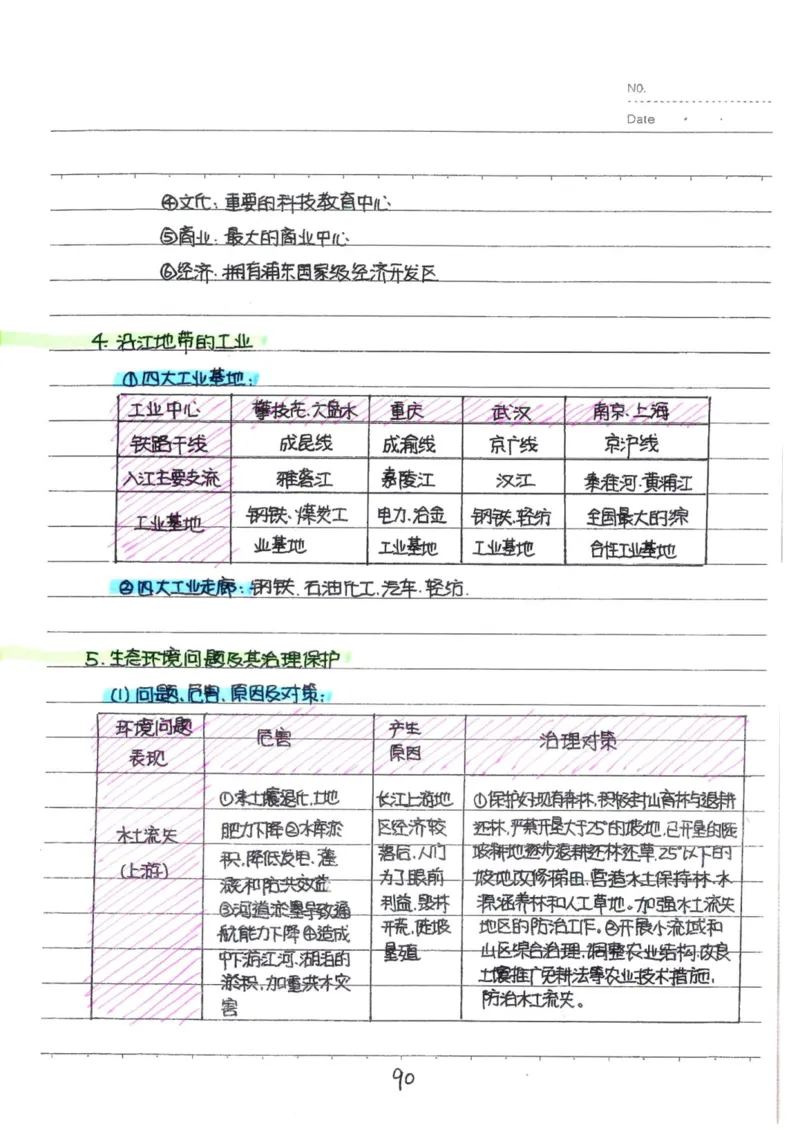 NO.
Date
④文化：重要的科技教育中心
⑤商业：最大的商业中心
⑥经济：拥有浦东国家级经济开发区
4. 沿江地带的工业
①四大工业基地：
工业中心 攀枝花、六盘水 重庆 武汉 南京、上海
铁路干线 成昆线 成渝线 京广线 京沪线
入江主要支流 雅砻江 嘉陵江 汉江 秦淮河、黄浦江
工业基地 钢铁、煤炭工 电力、冶金 钢铁、轻纺 全国最大的综
业基地 工业基地 工业基地 合性工业基地
②四大工业走廊：钢铁、石油化工、汽车、轻纺.
5. 生态环境问题及其治理保护
(1) 问题、危害、原因及对策：
环境问题
表现
危害
产生
原因
治理对策
水土流失
(上游)
①土壤退化，土地
肥力下降②水库淤
积，降低发电、灌
溉和防洪效益
③河道淤塞导致通
航能力下降④造成
中下游江河、湖泊的
淤积，加重洪水灾
害
长江上游地
区经济较
落后，人们
为了眼前
利益，毁林
开荒，陡坡
垦殖
①保护好现有森林，积极封山育林与退耕
还林，严禁开垦大于25°的坡地，已开垦的陡
坡耕地逐步退耕还林还草，25°以下的
坡地改修梯田，营造水土保持林、水
源涵养林和人工草地。加强水土流失
地区的防治工作。②开展小流域和
山区综合治理，调整农业结构，改良
土壤推广免耕法等农业技术措施，
防治水土流失。
90